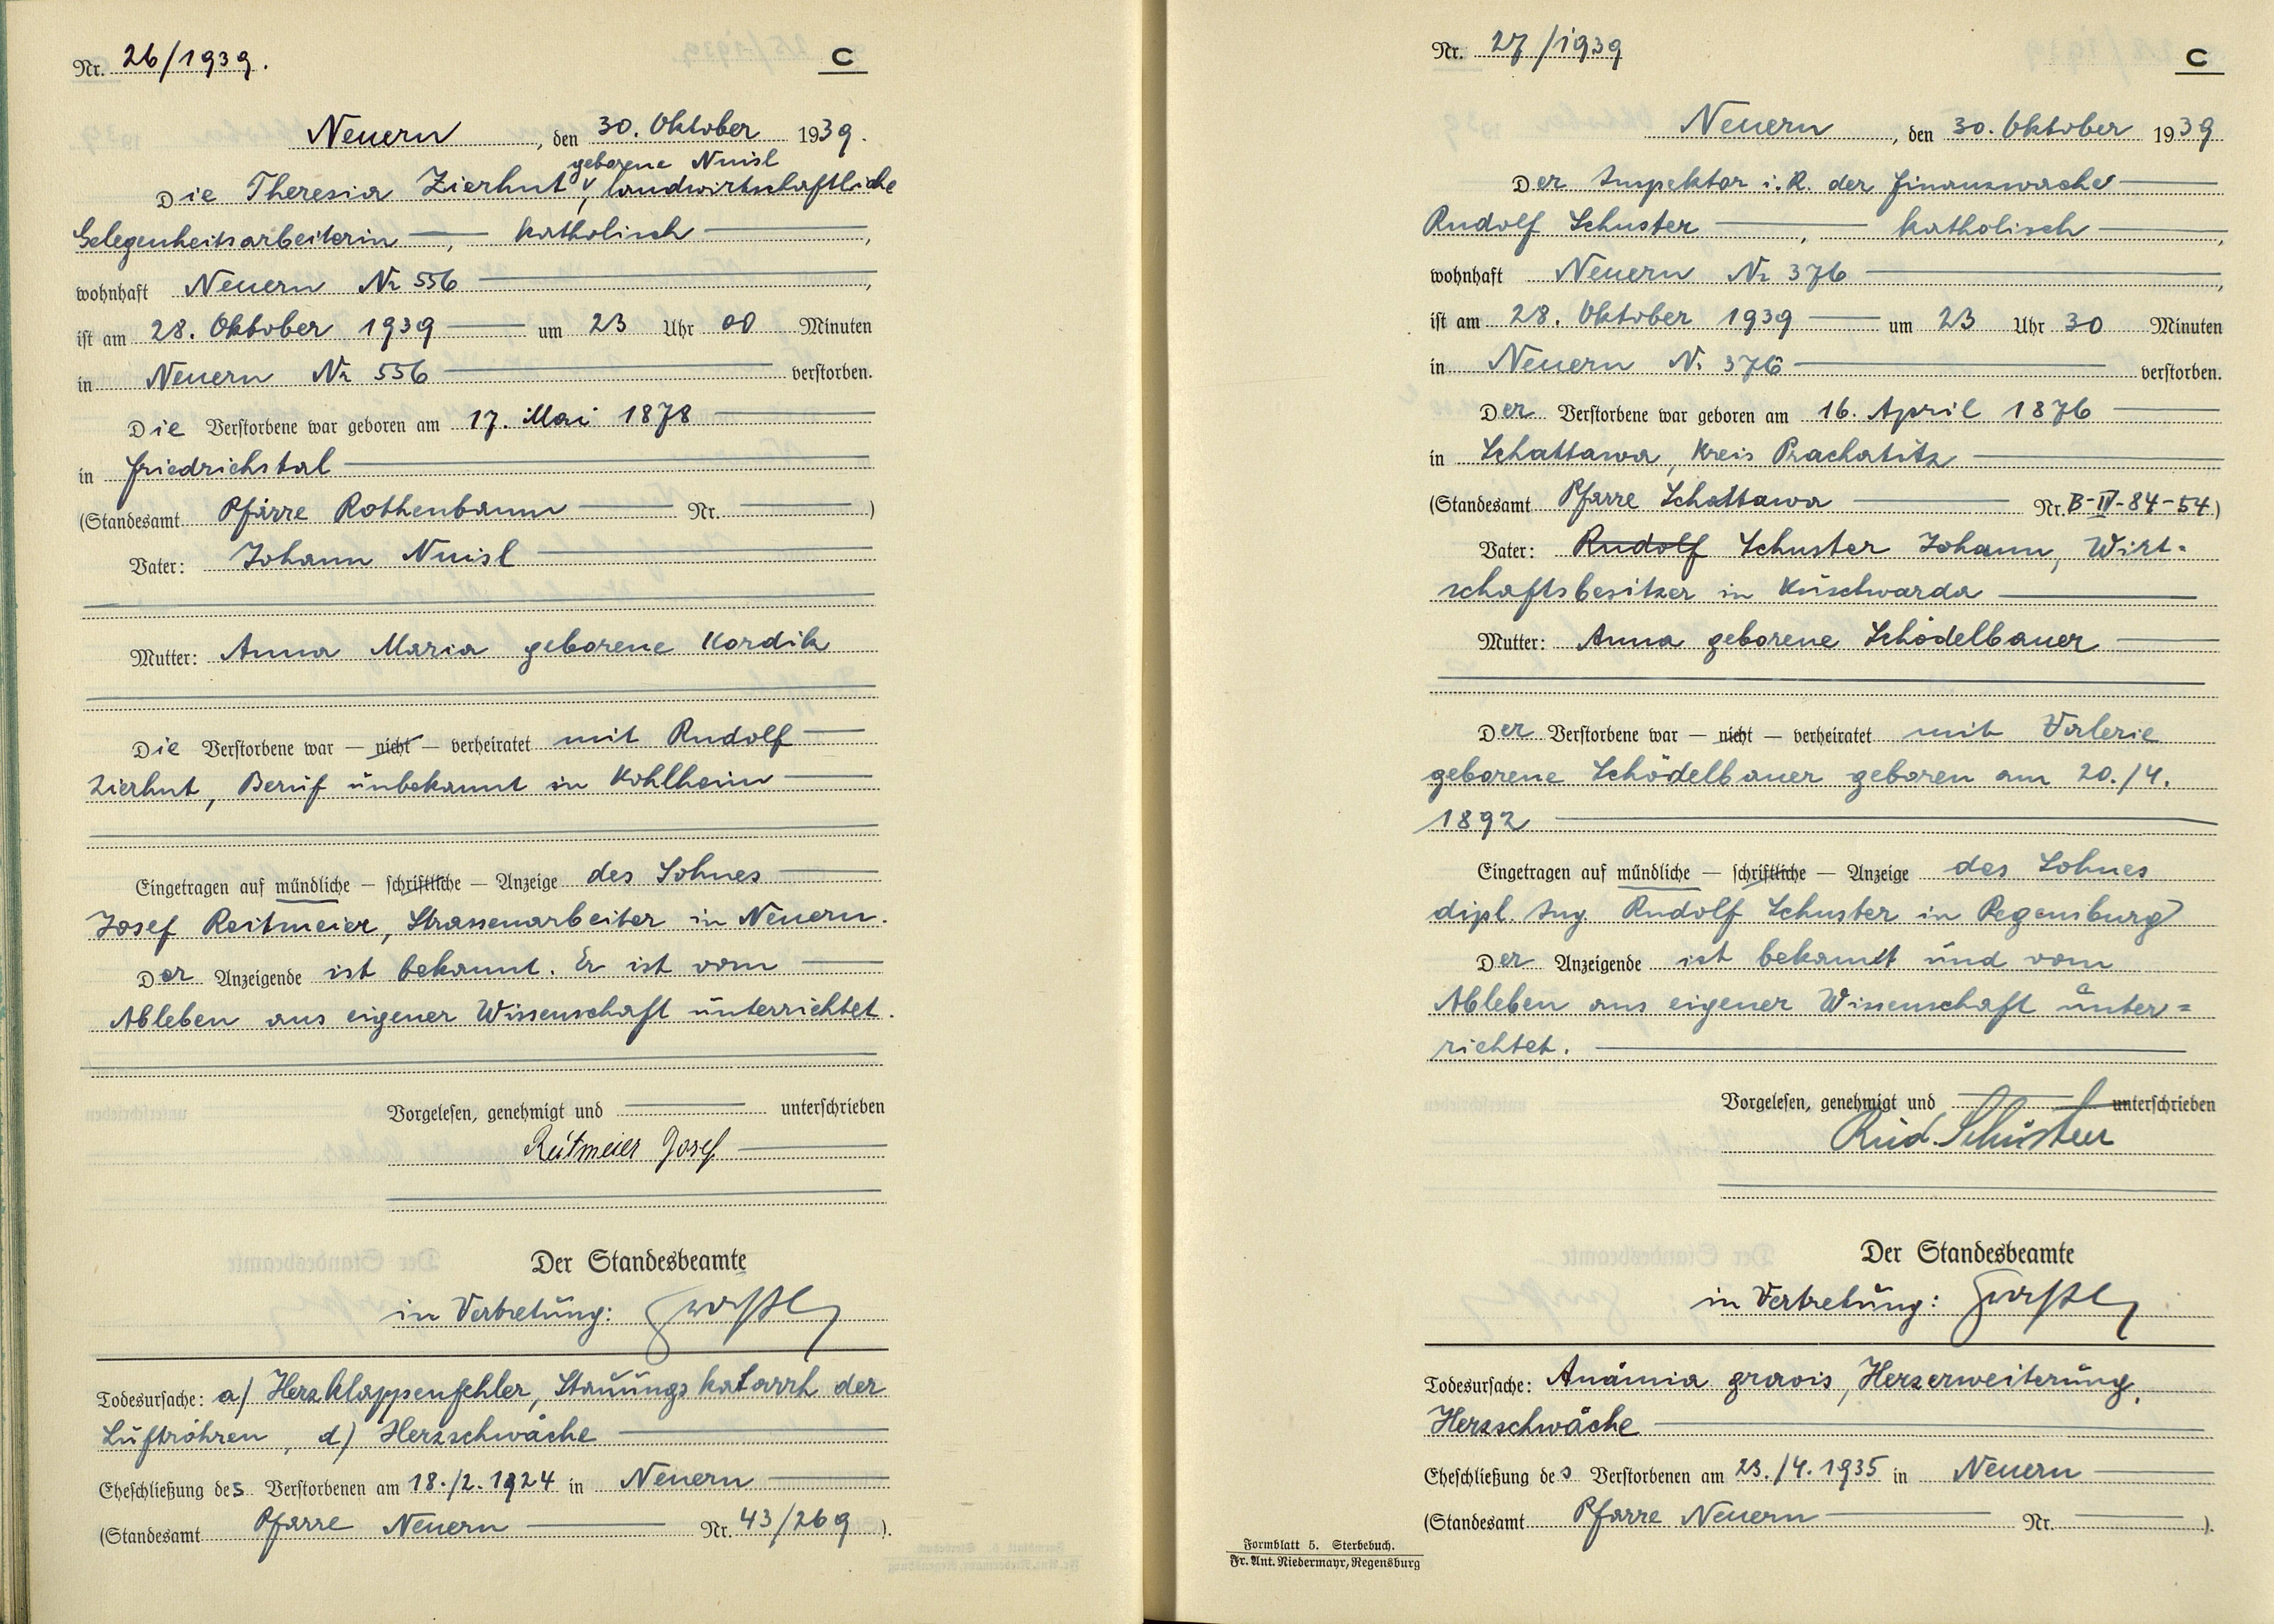 Nr. 26/1939.
C
Neuern, den 30. Oktober 1939.
geborene Nuisl
Die Theresia Zierhut, landwirtschaftliche
Gelegenheitsarbeiterin, katholisch,
wohnhaft Neuern Nr 556,
ist am 28. Oktober 1939 um 23 Uhr 00 Minuten
in Neuern Nr 556 verstorben.
Die Verstorbene war geboren am 17. Mai 1878
in Friedrichstal
(Standesamt Pfarre Rothenbaum Nr. )
Vater: Johann Nuisl
Mutter: Anna Maria geborene Kordik
Die Verstorbene war — nicht — verheiratet mit Rudolf
Zierhut, Beruf unbekannt in Kohlheim
Eingetragen auf mündliche — schriftliche — Anzeige des Sohnes
Josef Reitmeier, Strassenarbeiter in Neuern.
Der Anzeigende ist bekannt. Er ist vom
Ableben aus eigener Wissenschaft unterrichtet.
Vorgelesen, genehmigt und unterschrieben
Reitmeier Josef
Der Standesbeamte
in Vertretung:
Todesursache: a) Herzklappenfehler, Stauungskatarrh der
Luftröhren, d) Herzschwäche
Eheschließung des Verstorbenen am 18./2.1924 in Neuern
(Standesamt Pfarre Neuern Nr. 43/269 ).
Nr. 27/1939
C
Neuern, den 30. Oktober 1939
Der Inspektor i.R. der Finanzwache
Rudolf Schuster, katholisch,
wohnhaft Neuern Nr 376,
ist am 28. Oktober 1939 um 23 Uhr 30 Minuten
in Neuern Nr. 376 verstorben.
Der Verstorbene war geboren am 16. April 1876
in Schattawa, Kreis Prachatitz
(Standesamt Pfarre Schattawa Nr. B-IV-84-54)
Vater: Rudolf Schuster Johann, Wirt=
schaftsbesitzer in Kuschwarda
Mutter: Anna geborene Schödelbauer
Der Verstorbene war — nicht — verheiratet mit Valerie
geborene Schödelbauer geboren am 20./4.
1892
Eingetragen auf mündliche — schriftliche — Anzeige des Sohnes
dipl. Ing. Rudolf Schuster in Regensburg
Der Anzeigende ist bekannt und vom
Ableben aus eigener Wissenschaft unter=
richtet.
Vorgelesen, genehmigt und unterschrieben
Rud. Schuster
Der Standesbeamte
in Vertretung:
Todesursache: Anämia gravis, Herzerweiterung,
Herzschwäche
Eheschließung des Verstorbenen am 23./4.1935 in Neuern
(Standesamt Pfarre Neuern Nr. ).
Formblatt 5. Sterbebuch.
Fr. Ant. Niedermayr, Regensburg